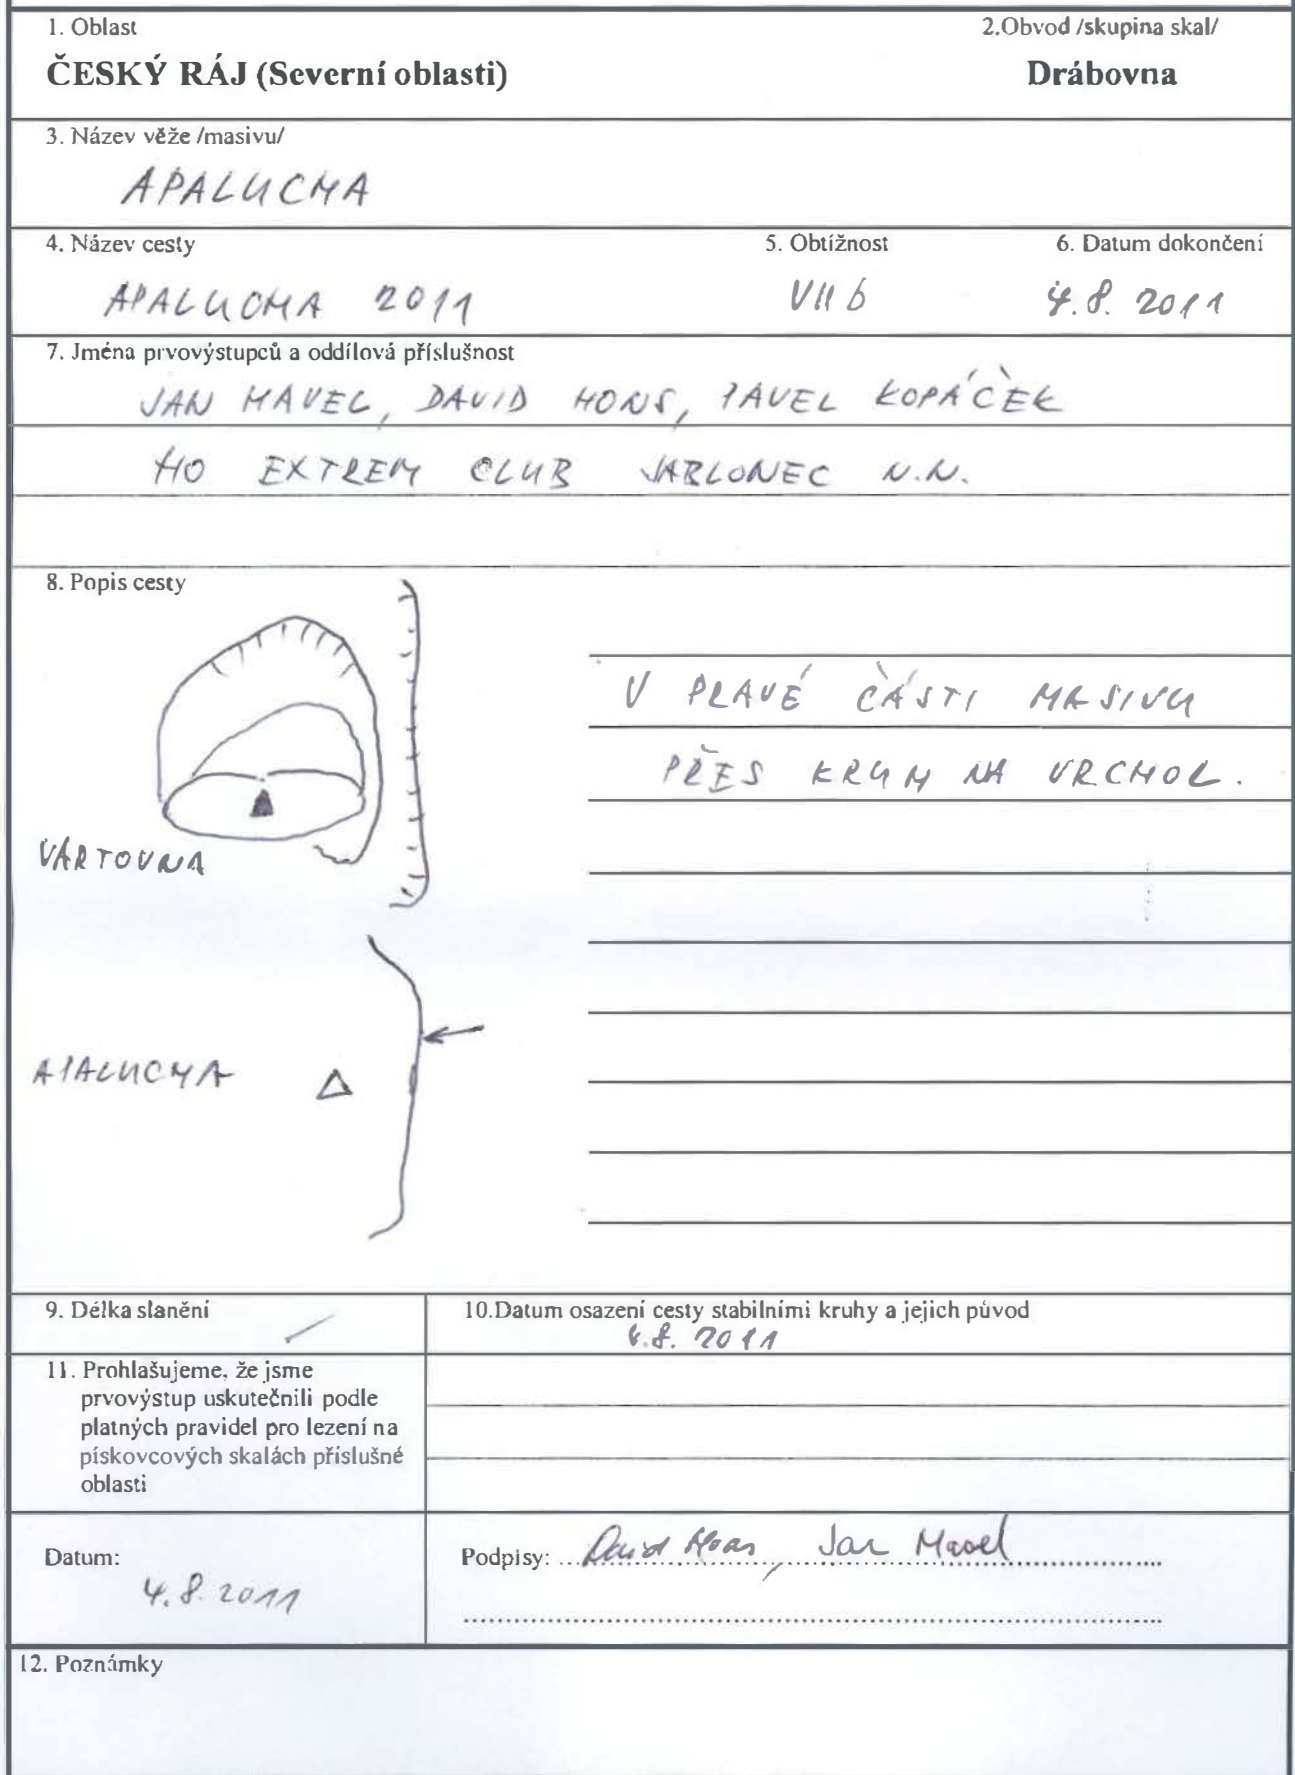 1. Oblast
2.Obvod /skupina skal/
ČESKÝ RÁJ (Severní oblasti)
Drábovna
3. Název věže /masivu/
APALUCHA
4. Název cesty
5. Obtížnost
6. Datum dokončení
APALUCHA 2011
VII b
4.8. 2011
7. Jména prvovýstupců a oddílová příslušnost
JAN HAVEL, DAVID HONS, PAVEL KOPÁČEK
HO EXTREM CLUB JABLONEC N.N.
8. Popis cesty
V PRAVÉ ČÁSTI MASIVU
PŘES KRUH NA VRCHOL.
VÁRTOVNA
APALUCHA
9. Délka slanění
10.Datum osazení cesty stabilními kruhy a jejich původ
4.8. 2011
11. Prohlašujeme, že jsme
prvovýstup uskutečnili podle
platných pravidel pro lezení na
pískovcových skalách příslušné
oblasti
Datum:
4.8.2011
Podpisy: David Hons, Jan Havel
12. Poznámky